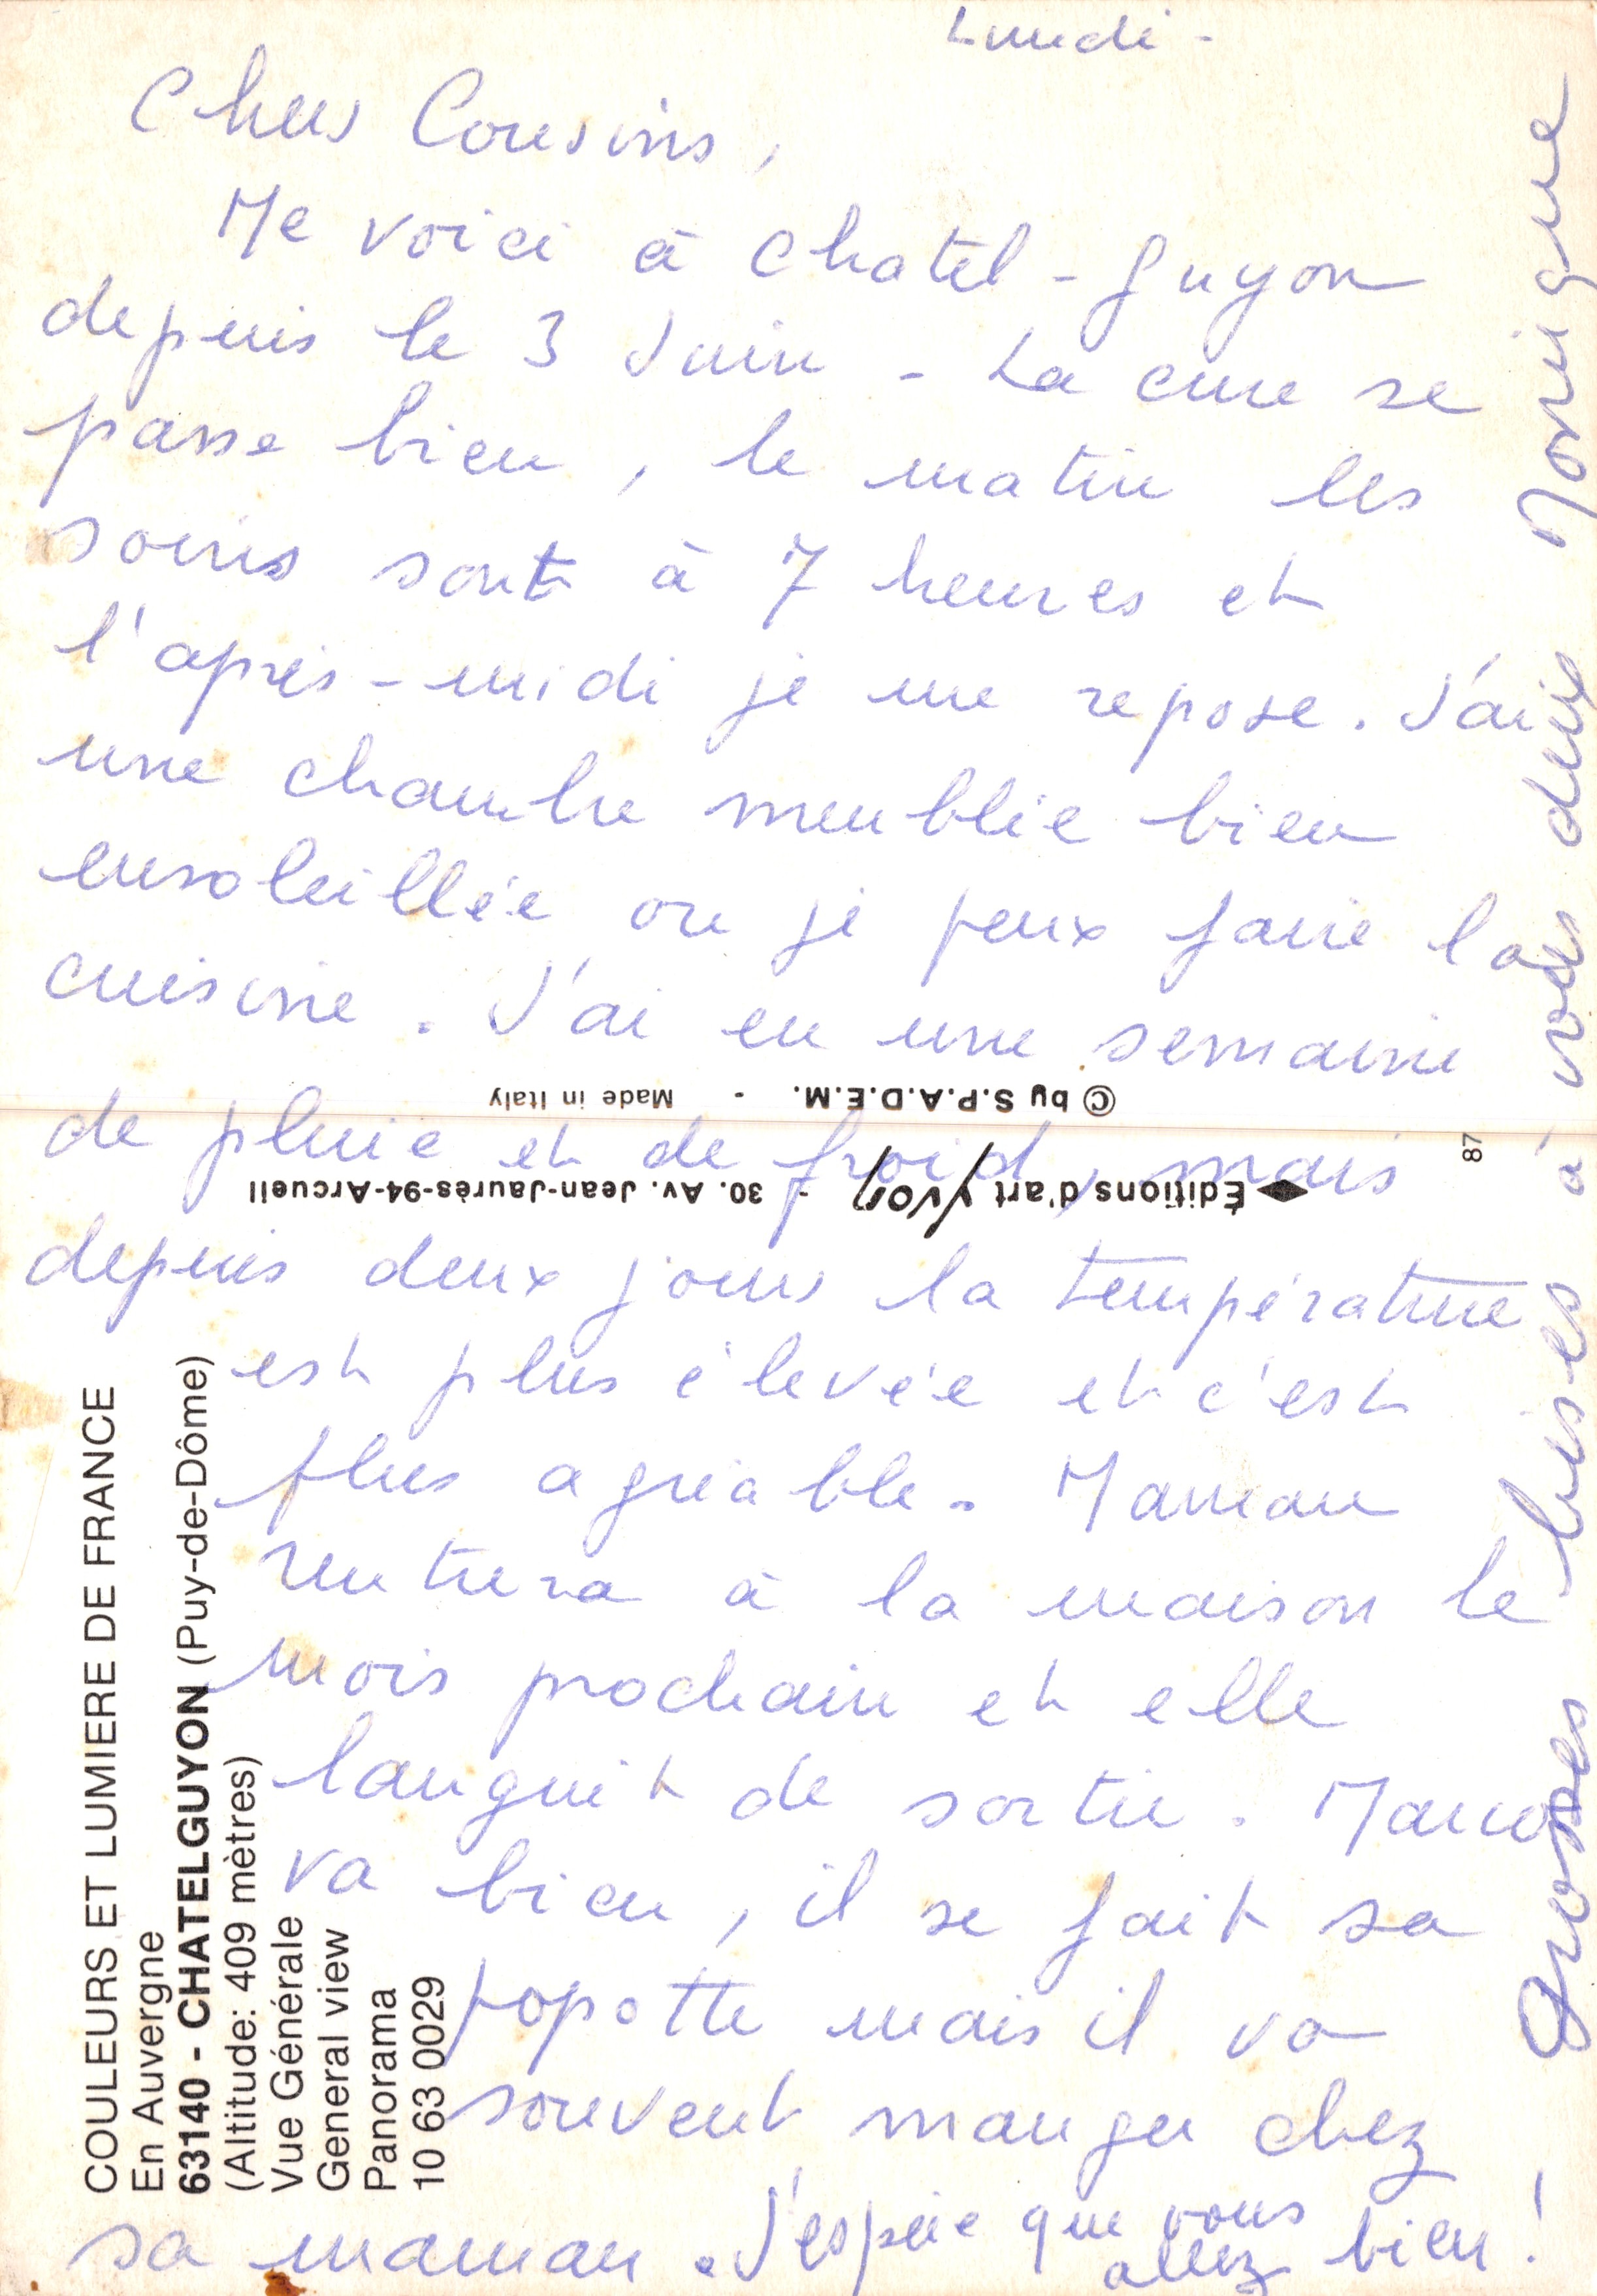 Lundi -
Chers Cousins,
Me voici à Chatel-Guyon
depuis le 3 Juin - La cure se
passe bien, le matin les
soins sont à 7 heures et
l'après-midi je me repose. J'ai
une chambre meublée bien
ensoleillée ou je peux faire la
cuisine. J'ai eu une semaine
de pluie et de froid, mais
depuis deux jours la température
est plus élevée et c'est
plus agréable. Maman
rentrera à la maison le
mois prochain et elle
languit de sortir. Marco
va bien, il se fait sa
popotte mais il va
souvent manger chez
sa maman. J'espère que vous
allez bien !
Grosses bises à vous deux Monique
© by S.P.A.D.E.M. - Made in Italy
Éditions d'art Yvon - 30. Av. Jean-Jaurès-94-Arcueil
87
COULEURS ET LUMIERE DE FRANCE
En Auvergne
63140 - CHATELGUYON (Puy-de-Dôme)
(Altitude: 409 mètres)
Vue Générale
General view
Panorama
10 63 0029